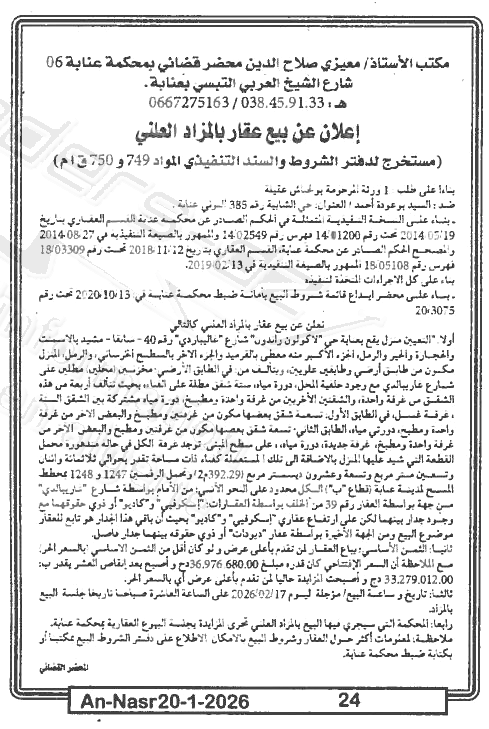 مكتب الأستاذ/ معيزي صلاح الدين محضر قضائي بمحكمة عنابة 06
شارع الشيخ العربي التبسي بعنابة.
هـ: 038.45.91.33 / 0667275163
إعلان عن بيع عقار بالمزاد العلني
(مستخرج لدفتر الشروط والسند التنفيذي المواد 749 و 750 ق إ م)
بناءا على طلب 1 ورثة المرحومة بولحناش عقيلة
ضد: السيد بوعودة أحمد / العنوان: حي الشابية رقم 385 البوني عنابة.
- بناءا على النسخة التنفيذية المتمثلة في الحكم الصادر عن محكمة عنابة القسم العقاري بتاريخ
2014/05/19 تحت رقم 14/01200 فهرس رقم 14/02549 والممهور بالصيغة التنفيذية في 2014-08-27
والمصحح الحكم الصادر عن محكمة عنابة، القسم العقاري بتاريخ 2018/11/12 تحت رقم 18/03309
فهرس رقم 18/05108 الممهور بالصيغة التنفيذية في 2019/02/13.
بناء على كل الاجراءات المتخذة لتنفيذه
- بناء على محضر ايداع قائمة شروط البيع بأمانة ضبط محكمة عنابة في 2020/10/13 تحت رقم
20/3075
نعلن عن بيع عقار بالمزاد العلني كالتالي
أولا: التعيين منزل يقع بعنابة حي "لاكولون راندون" شارع "غاليباردي" رقم 40 - سابقا - مشيد بالاسمنت
والحجارة والجير والرمل، الجزء الأكبر منه مغطى بالقرميد والجزء الاخر بالسطيح الخرساني، والرمل، المنزل
مكون من طابق أرضي وطابقين علويين، ويتألف من: في الطابق الأرضي: مخزنين (محلين) مطلين على
شارع غاريبالدي مع وجود خلفية المحل، دورة مياه، ستة شقق مطلة على الفناء، بحيث تتألف أربعة من هذه
الشقق من غرفة واحدة، والشقتين الأخريين من غرفة واحدة ومطبخ، دورة مياه مشتركة بين الشقق الستة
، غرفة غسيل، في الطابق الأول: تسعة شقق بعضها مكون من غرفتين ومطبخ والبعض الاخر من غرفة
واحدة ومطبخ، دورتي مياه، الطابق الثاني: تسعة شقق بعضها مكون من غرفتين ومطبخ والبعض الاخر من
غرفة واحدة ومطبخ، غرفة جديدة، دورة مياه، ، على سطح المبنى توجد غرفة الكل في حالة متدهورة محمل
القطعة التي شيد عليها المنزل بالاضافة الى تلك المستعملة كفناء ذات مساحة تقدر بحوالي ثلاثمائة واثنان
وتسعين متر مربع وتسعة وعشرون ديسمتر مربع (392.29م2) وتحمل الرقمين 1247 و 1248 بمخطط
المسح لمدينة عنابة (قطاع "ب") الكل محدود على النحو الآتي: من الأمام بواسطة شارع "غاريبالدي"
من جهة بواسطة العقار رقم 39 من الخلف بواسطة العقارات: "إسكرفيي" و"كادير" أو ذوي حقوقهما مع
وجود جدار بينهما لكن على ارتفاع عقاري "إسكرفيي" و"كادير" بحيث أن باقي هذا الجدار هو تابع للعقار
موضوع البيع ومن الجهة الأخيرة بواسطة عقار "ديودات" أو ذوي حقوقه بينهما جدار فاصل.
ثانيا: الثمن الأساسي: يباع العقار لمن تقدم بأعلى عرض و لو كان أقل من الثمن الاساسي "بالسعر الحر"
مع الملاحظة أن السعر الإفتتاحي كان قدره مبلغ 36.976.680.00دج و أصبح بعد إنقاص العشر يقدر ب:
33.279.012.00 دج و أصبحت المزايدة حاليا لمن تقدم بأعلى عرض أي بالسعر الحر.
ثالثا: تاريخ و ساعة البيع/ مؤجلة ليوم 2026/02/17 على الساعة العاشرة صباحا تاريخا جلسة البيع
بالمزاد.
رابعا: المحكمة التي سيجري فيها البيع بالمزاد العلني تجرى المزايدة بجلسة البيوع العقارية بمحكمة عنابة.
ملاحظة: لمعلومات أكثر حول العقار وشروط البيع بالامكان الاطلاع على دفتر الشروط البيع بمكتبنا أو
بكتابة ضبط محكمة عنابة.
المحضر القضائي
An-Nasr20-1-2026
24